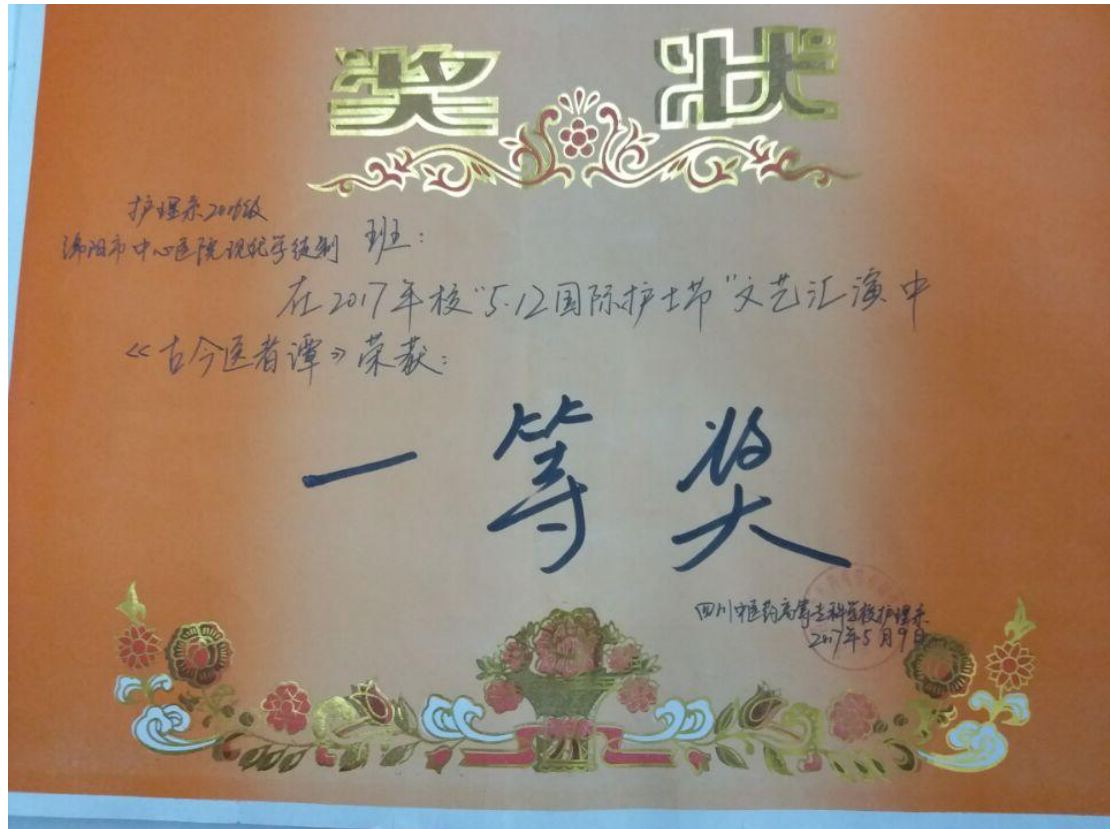 奖状
护理系2016级
绵阳市中心医院现代学徒制 班:
在2017年校"5.12国际护士节"文艺汇演中
《古今医者谭》荣获:
一等奖
四川中医药高等专科学校护理系
2017年5月9日